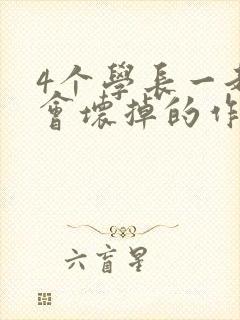 4个學長一
會壞掉的作
六盲星